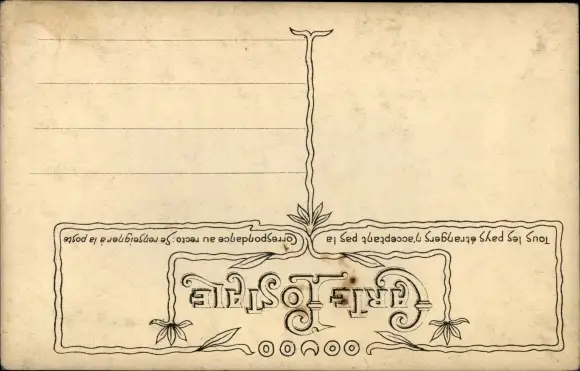 CARTE POSTALE
Tous les pays étrangers n'acceptant pas la Correspondance au recto. Se renseigner à la poste